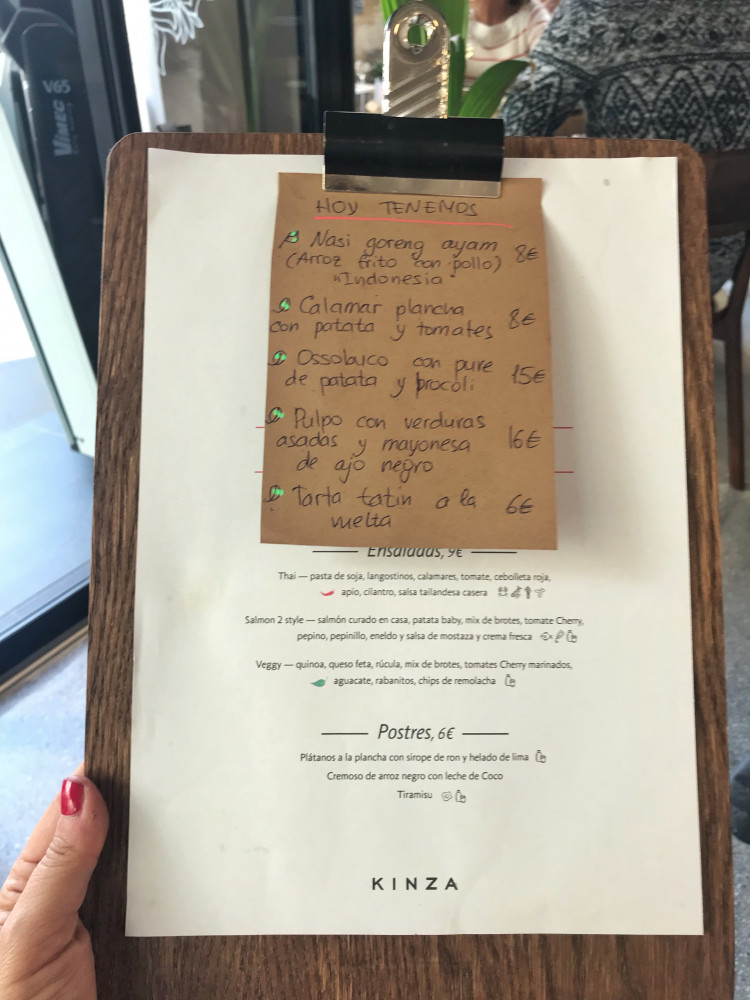 VIMEC V65
HOY TENEMOS
Nasi goreng ayam 8€
(Arroz frito con pollo)
"Indonesia"
Calamar plancha
con patata y tomates 8€
Ossobuco con pure 15€
de patata y brocoli
Pulpo con verduras
asadas y mayonesa 16€
de ajo negro
Tarta tatin a la 6€
vuelta
Ensaladas, 9€
Thai — pasta de soja, langostinos, calamares, tomate, cebolleta roja,
apio, cilantro, salsa tailandesa casera
Salmon 2 style — salmón curado en casa, patata baby, mix de brotes, tomate Cherry,
pepino, pepinillo, eneldo y salsa de mostaza y crema fresca
Veggy — quinoa, queso feta, rúcula, mix de brotes, tomates Cherry marinados,
aguacate, rabanitos, chips de remolacha
Postres, 6€
Plátanos a la plancha con sirope de ron y helado de lima
Cremoso de arroz negro con leche de Coco
Tiramisu
KINZA